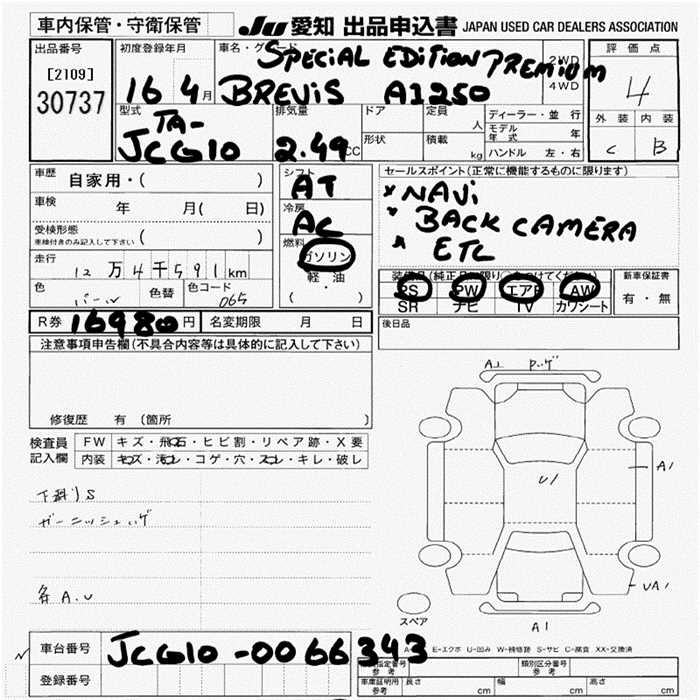 車内保管・守衛保管
JU 愛知 出品申込書 JAPAN USED CAR DEALERS ASSOCIATION
出品番号
[2109]
30737
初度登録年月
16 4月
車名・グレード
SPECIAL EDITION PREMIUM
BREVIS AI250
2WD
4WD
評価点
4
外装 内装
C B
型式
TA-
JCG10
排気量
2.49 CC
ドア
定員
人
形状
積載
kg
ディーラー・並行
モデル年式 年
ハンドル 左・右
車歴 自家用・( )
車検 年 月( 日)
受検形態
車検付きのみ記入して下さい ( )
走行 12万4千591km
色 パール 色替 色コード 065
シフト
AT
冷房
AC
燃料
ガソリン
軽・油
( ・ )
セールスポイント(正常に機能するものに限ります)
* NAVi
* BACK CAMERA
* ETC
PS PW エアB AW
SR ナビ TV カワシート
新車保証書
有・無
R券 16980円 名変期限 月 日
後日品
注意事項申告欄(不具合内容等は具体的に記入して下さい)
修復歴 有 (箇所 )
検査員
記入欄
FW キズ・飛石・ヒビ割・リペア跡・X要
内装 キズ・汚れ・コゲ・穴・スレ・キレ・破レ
下廻りS
各A.U
A1
U1
A1
UA1
A1
スペア
E-エクボ U-凹み W-補修跡 S-サビ C-腐食 XX-交換済
車台番号 JCG10-0066343
登録番号
類別区分番号
車庫証明用 参考 長さ cm 幅 cm 高さ cm